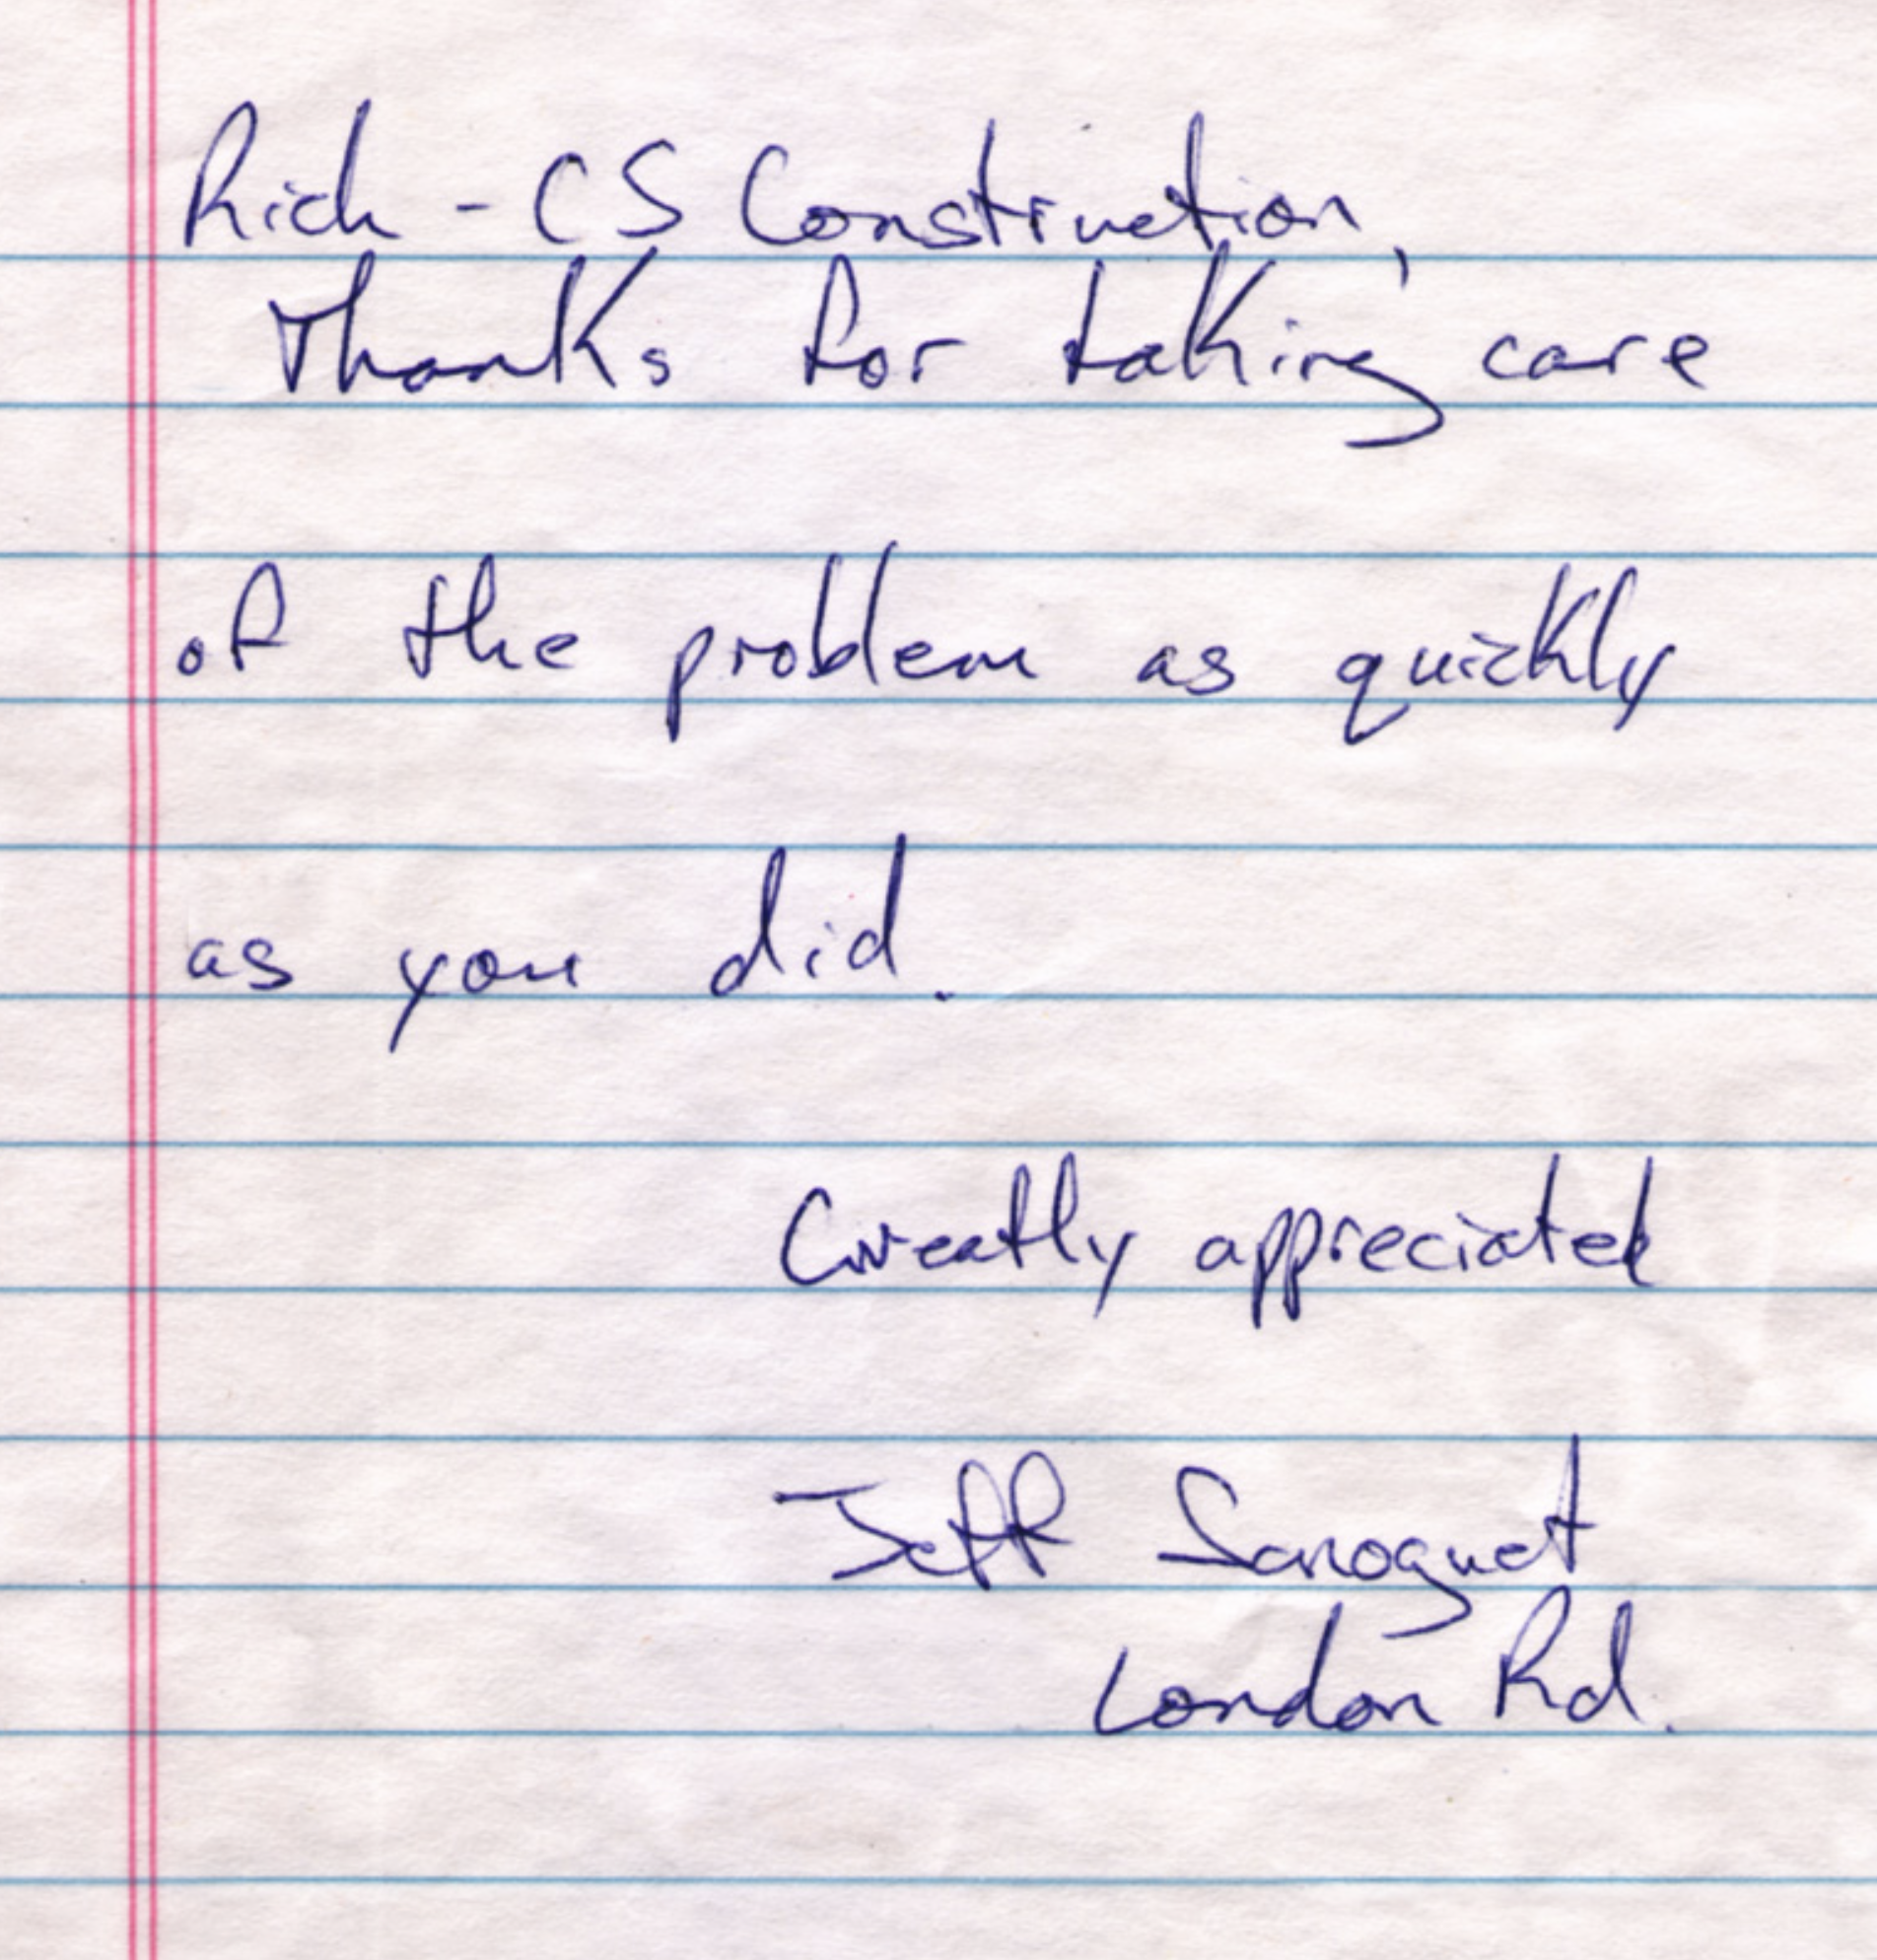 Rich - CS Construction,
Thanks for taking care
of the problem as quickly
as you did.
Greatly appreciated
Jeff
London Rd.